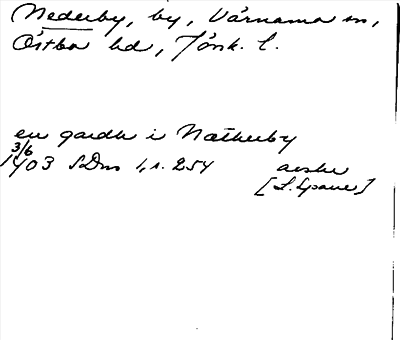 Nederby, by, Värnamo sn,
Östbo hd, Jönk. l.
en gardh i Nætherby
3/6
1403 SDns 1, s. 254 avskr